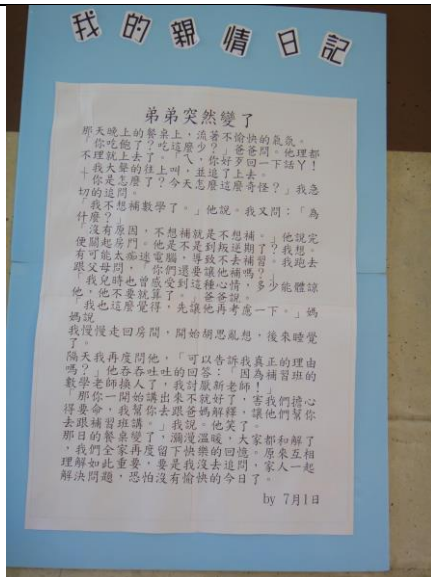 我的親情日記
弟弟突然變了
那天晚上的餐桌上，流著不愉快的氣氛。
「你吃飽了？吃這麼少？」爸爸問。他理都
不理就上去了。「ㄟ，你好歹回一下話ㄚ！
」我大聲的往上叫，並追了上去。
「你是怎麼了？今天怎麼這麼奇怪？」我急
切的追問。
「我不想補數學了。」他說。我又問：「為
什麼？」
「沒有原因，不想補就是不想補。」他說完
便關起房門。他是不是到叛逆期了？我想。
有可能太痴迷電腦，導致不去補習。我跑去
跟父母問，「你們還要讓他補嗎？」
「我兒時也曾感受到這種心情，多少能體諒
他，他不要就算了。」爸爸說。
「我也這麼覺得，先讓他再考慮一下。」媽
媽說
我慢慢走回房間，開始胡思亂想，後來睡覺
了。
隔天我再度問他，「可以告訴我真正的理由
嗎？」他吞吞吐吐的回答：「因為補習班的
數學老師換人了，我討厭新老師！」
「那你一開始講出來不就好了，害我們擔心
得要命，我幫你去跟爸媽解釋，讓他們幫你
去跟補習班講。」我說。他笑了。
那日的餐桌變了，瀰漫溫暖，大家都和解了
，我們全家再度留下快樂的回憶。原來互相
理解如此重要，要是我沒去追問，家人一起
解決問題，恐怕沒有愉快的今日了。
by 7月1日